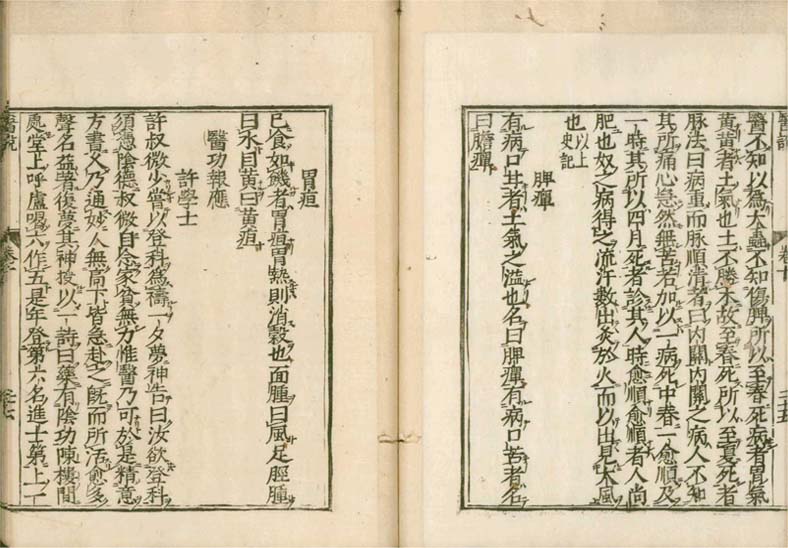 醫不知以爲大蟲不知傷脾所以至春死病者胃氣
黃黃者土氣也土不勝木故至春死所以至夏死者
脉法曰病重而脉順清者曰內關內關之病人不知
其所痛心急然無苦若加以一病死中春一愈順及
一時其所以四月死者診其人時愈順愈順者人尚
肥也奴之病得之流汗數出灸於火而以出見大風
也以上史記
脾癉
有病口甘者土氣之溢也名曰脾癉有病口苦者名
曰膽癉
胃疸
已食如饑者胃疸胃熱則消穀也面腫曰風足脛腫
曰水目黃曰黃疸
醫功報應
許學士
許叔微少嘗以登科爲禱一夕夢神告曰汝欲登科
須憑陰德叔微自念家貧無力惟醫乃可於是精意
方書久乃通妙人無高下皆急赴之既而所活愈多
聲名益著復夢其神授以一詩曰藥有陰功陳樓間
處堂上呼盧喝六作五是年登第六名進士第上一